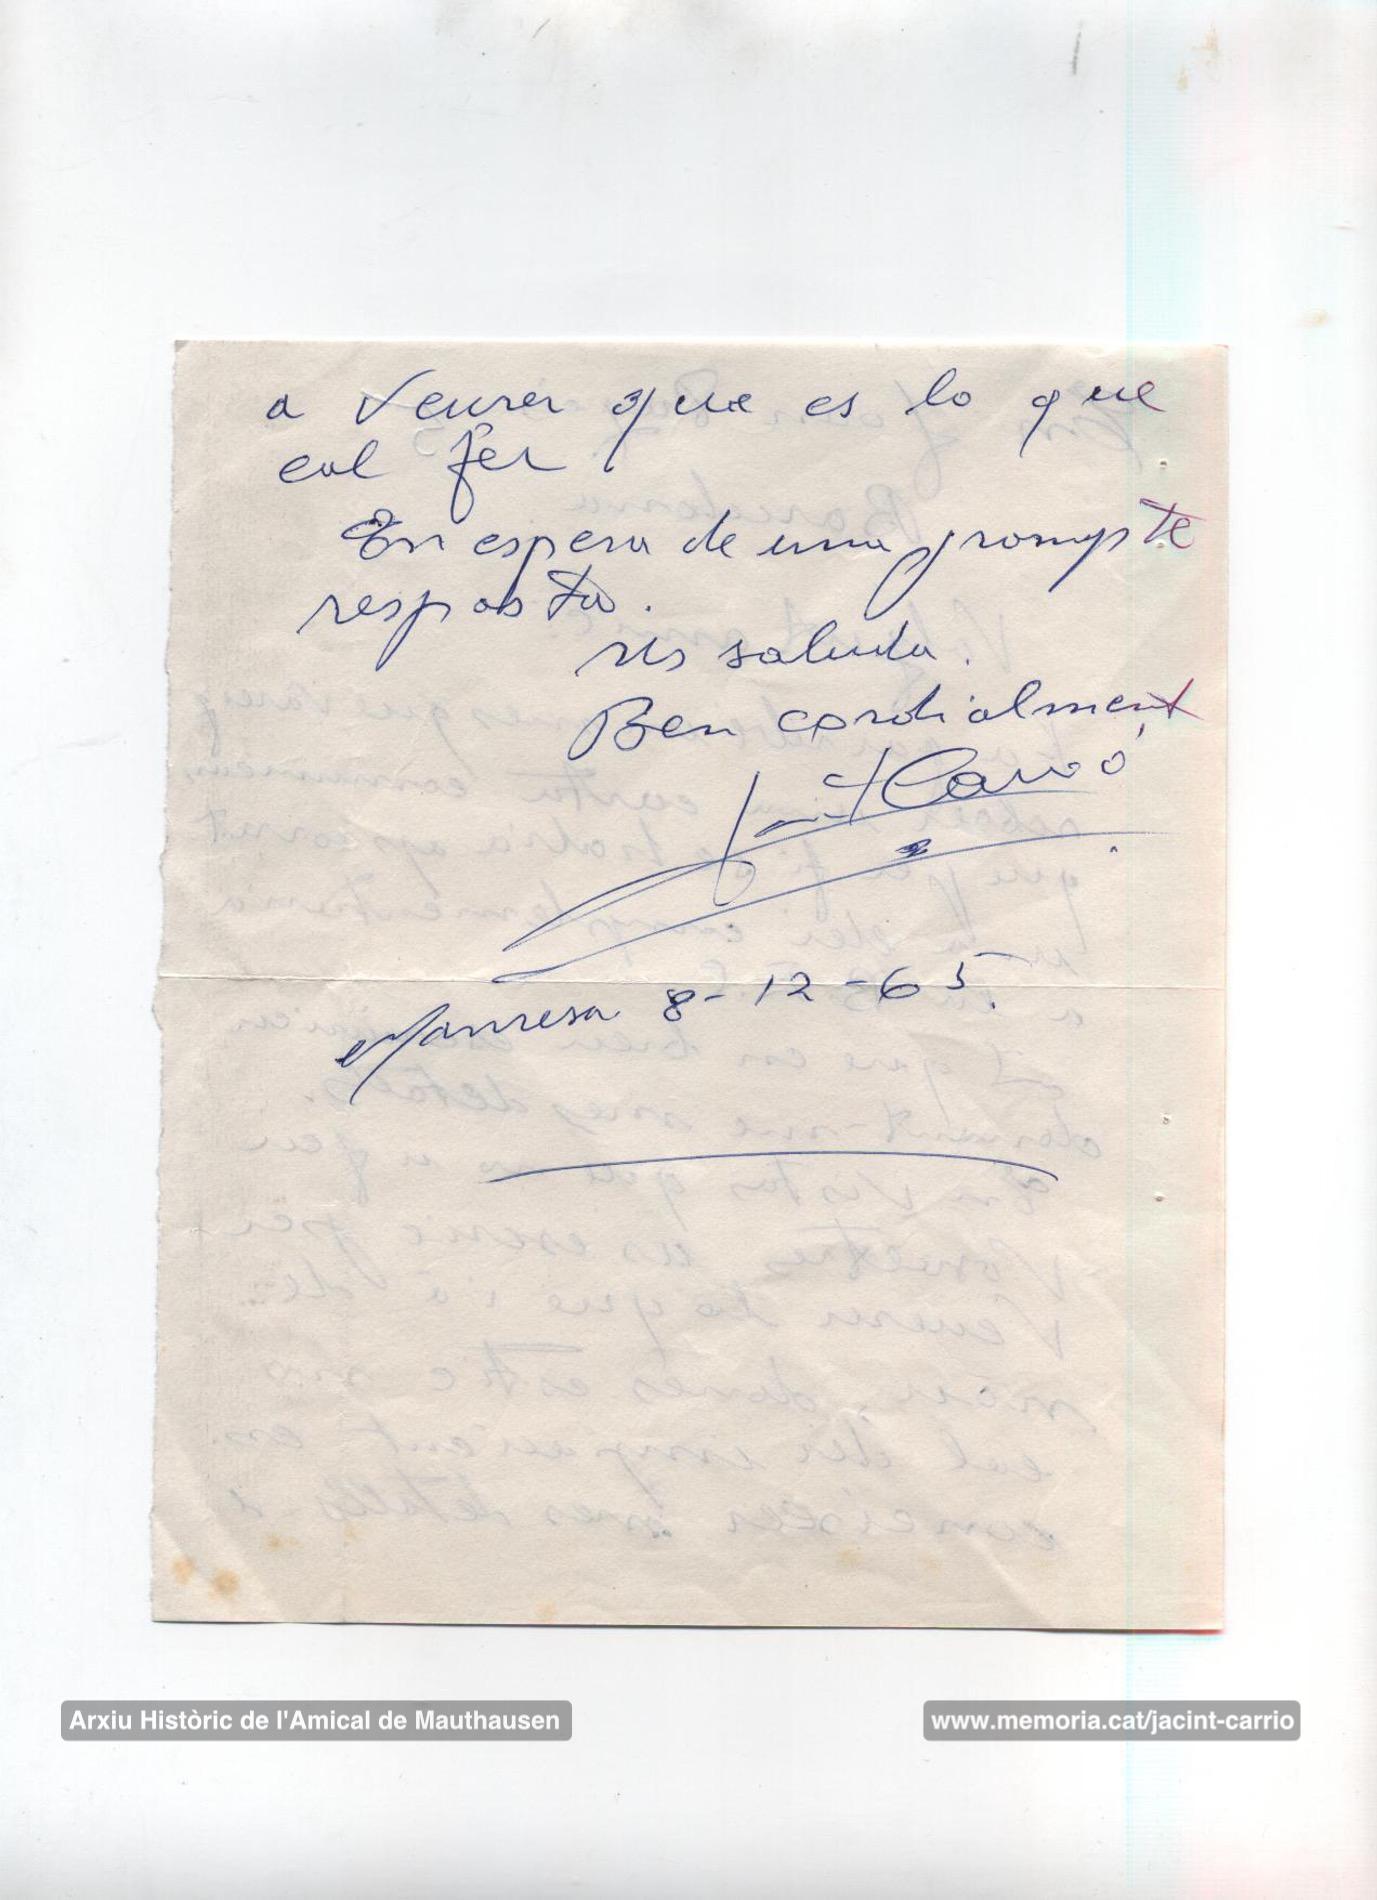 a veurer que es lo que
cal fer
En espera de una prompte
resposta.
us saluda.
Ben cordialment
Jacint Carrió
Manresa 8-12-65.
Arxiu Històric de l'Amical de Mauthausen
www.memoria.cat/jacint-carrio